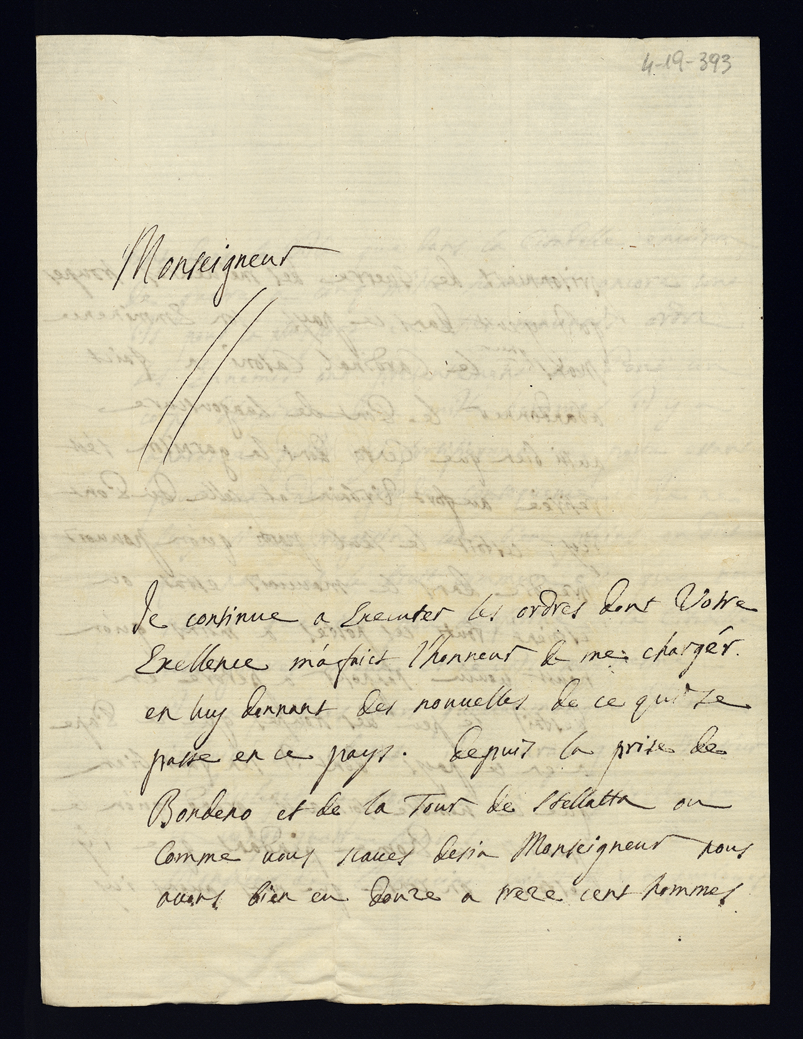 4-19-393
Monseigneur
Je continue a Executer les ordres dont Votre
Exellence m'a faict l'honneur de me charger.
en luy donnant des nouuelles de ce qui se
passe en ce pays. depuis la prise de
Bondeno et de la Tour de Stellatta ou
Comme vous scaues desia Monseigneur nous
auons bien eu douze a treze cent hommes